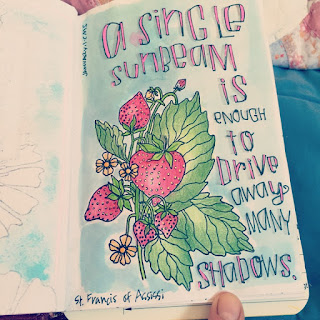 a single
sunbeam
is
enough
to
Drive
away
many
shadows.
St. Francis of Assissi